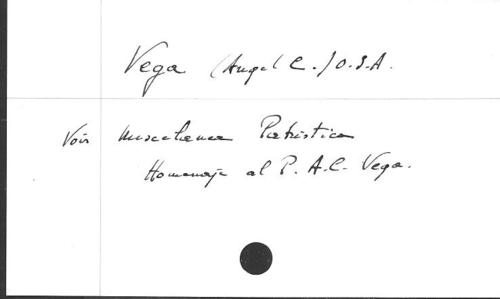 Vega (Angel C.) O.S.A.
Voir Miscelanea Patristica
Homenaje al P. A.C. Vega.